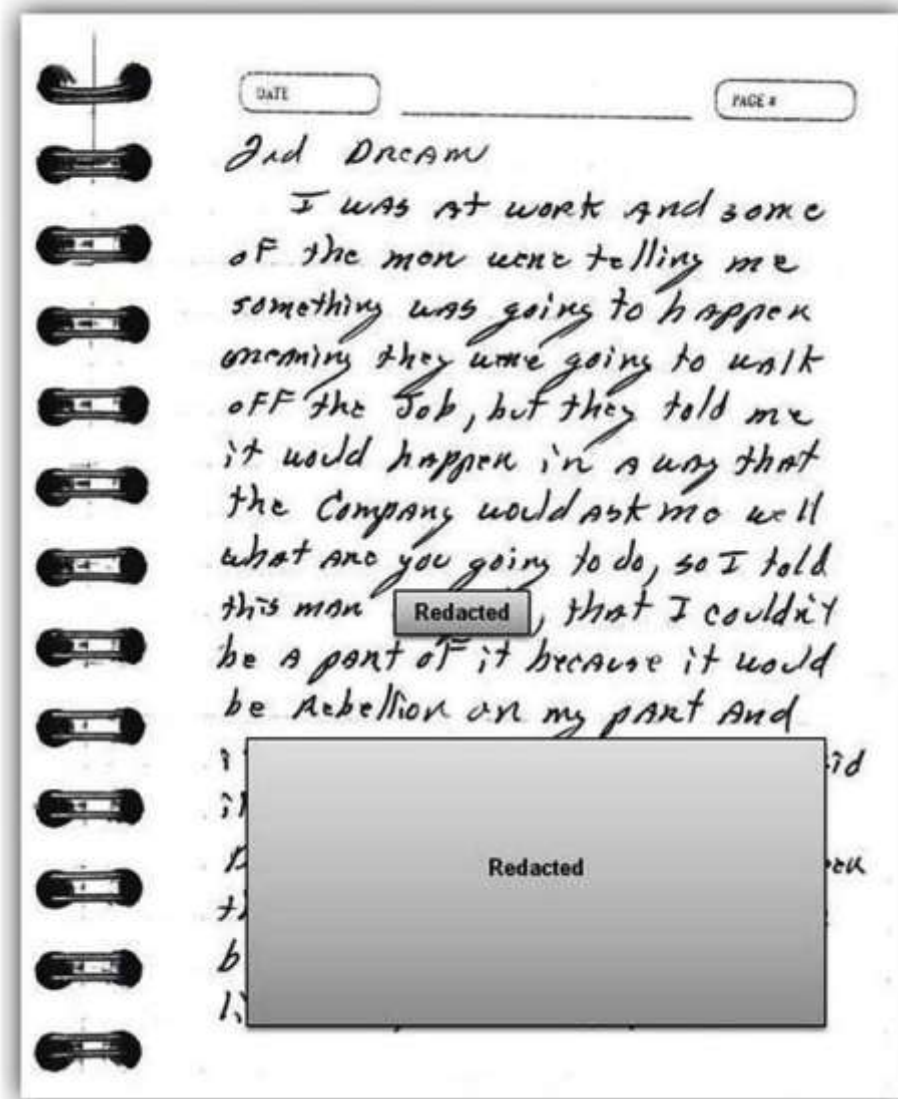 DATE
PAGE #
2nd Dream
I was at work and some
of the men were telling me
something was going to happen
meaning they were going to walk
off the Job, but they told me
it would happen in a way that
the Company would ask me well
what are you going to do, so I told
this man Redacted, that I couldn't
be a part of it because it would
be Rebellion on my part and
Redacted